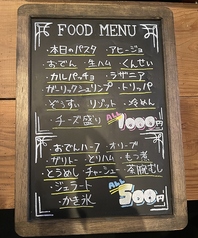 FOOD MENU
・本日のパスタ ・アヒージョ
・おでん ・生ハム ・くんせい
・カルパッチョ ・ラザニア
・ガーリックシュリンプ ・トリッパ
・ぞうすい ・リゾット ・冷めん
・チーズ盛り ALL 1000円
・おでんハーフ ・オリーブ
・ガリトー ・とりハム ・もつ煮
・とうめし ・チャーシュー ・茶腕むし
・ジェラート ALL
・かき氷 500円